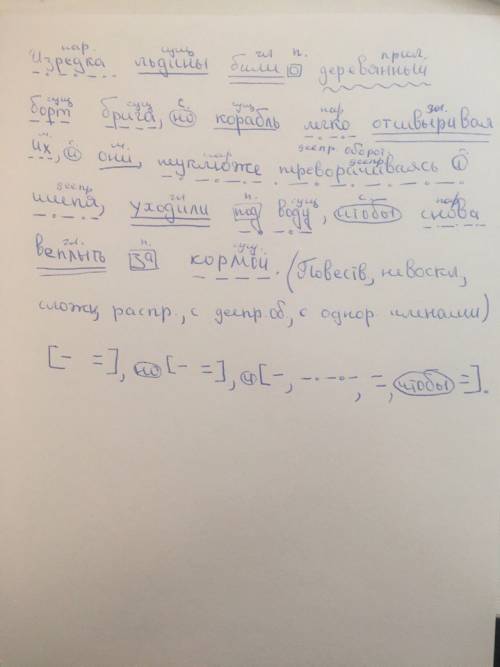 нар. сущ гл п. прил.
Изредка льдины били о деревянный
сущ сущ с. сущ нар гл.
борт брига, но корабль легко отшвыривал
м. м. нар деепр. оборот деепр.
их, и они, тяжело переворачиваясь и
деепр гл. п. сущ с. нар
шипя, уходили под воду, чтобы снова
гл. п. сущ.
всплыть за кормой. (Повеств, невоскл,
сложн, распр., с деепр. об, с однор. членами)
[- =], но [- =], и [-, -.-.-., =, чтобы =].